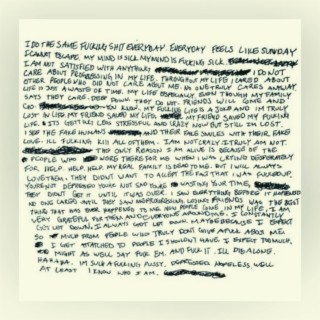 I DO THE SAME FUCKING SHIT EVERYDAY. EVERYDAY FEELS LIKE SUNDAY
I CANNOT ESCAPE, MY MIND IS SICK. MY MIND IS FUCKING SICK.
I AM NOT SATISFIED WITH ANYTHING I DO NOT
CARE ABOUT PROGRESSING IN MY LIFE. THROUGHOUT MY LIFE I CARED ABOUT
OTHER PEOPLE WHO DID NOT CARE ABOUT ME. NO ONE TRULY CARES ANYWAY.
LIFE IS JUST A WASTE OF TIME. MY LIFE ESPECIALLY. EVEN THOUGH MY FAMILY
SAYS THEY CARE. DEEP DOWN THEY DO NOT. FRIENDS WILL COME AND
GO. YOU KNOW. MY FUCKING LIFE IS A JOKE AND IM TRULY
LOST IN LIFE MY FRIEND SAVED MY LIFE. MY FRIEND SAVED MY FUCKING
LIFE. ITS GETTING LESS STRESSFUL AND CRAZY NOW BUT STILL IM LOST.
I SEE THE FAKE HUMANS AND THEIR FAKE SMILES WITH THEIR FAKE
LOVE. ILL FUCKING KILL ALL OF THEM. I AM NOT CRAZY I TRULY AM NOT.
THE ONLY REASON I AM ALIVE IS BECAUSE OF THE
PEOPLE WHO WERE THERE FOR ME WHEN I WAS CRYING DESPERATELY
FOR HELP. HELP. HELP. MY REAL FAMILY IS DEAD TO ME. BUT I WILL ALWAYS
LOVE THEM. THEY DIDNT WANT TO ACCEPT THE FACT THAT I WAS FUCKED UP.
YOURE NOT DEPRESSED YOURE JUST SAD YOURE WASTING YOUR TIME,
THEY DIDNT GET IT UNTIL IT WAS OVER. I SAW EVERYTHING BEFORE IT HAPPENED
NO ONE CARED UNTIL THEY SAW ME PROGRESSING. LOSING FRIENDS WAS THE BEST
THING THAT HAS EVER HAPPENED TO ME. NEW PEOPLE CAME IN MY LIFE, I AM
VERY GRATEFUL FOR THEM AND EVERYONE AROUND ME. I CONSTANTLY
GET LET DOWN. I ALWAYS GET LET DOWN. MAYBE BECAUSE I EXPECT
SO MUCH FROM PEOPLE WHO TRULY DONT GIVE A FUCK ABOUT ME.
I GET ATTACHED TO PEOPLE I SHOULDNT HAVE. I EXPECT TOO MUCH.
MIGHT AS WELL SAY FUCK EM. AND FUCK IT. ILL DIE ALONE.
HAHAHA. IM SUCH A FUCKING PUSSY. DEPRESSED HOPELESS WELL
AT LEAST I KNOW WHO I AM.